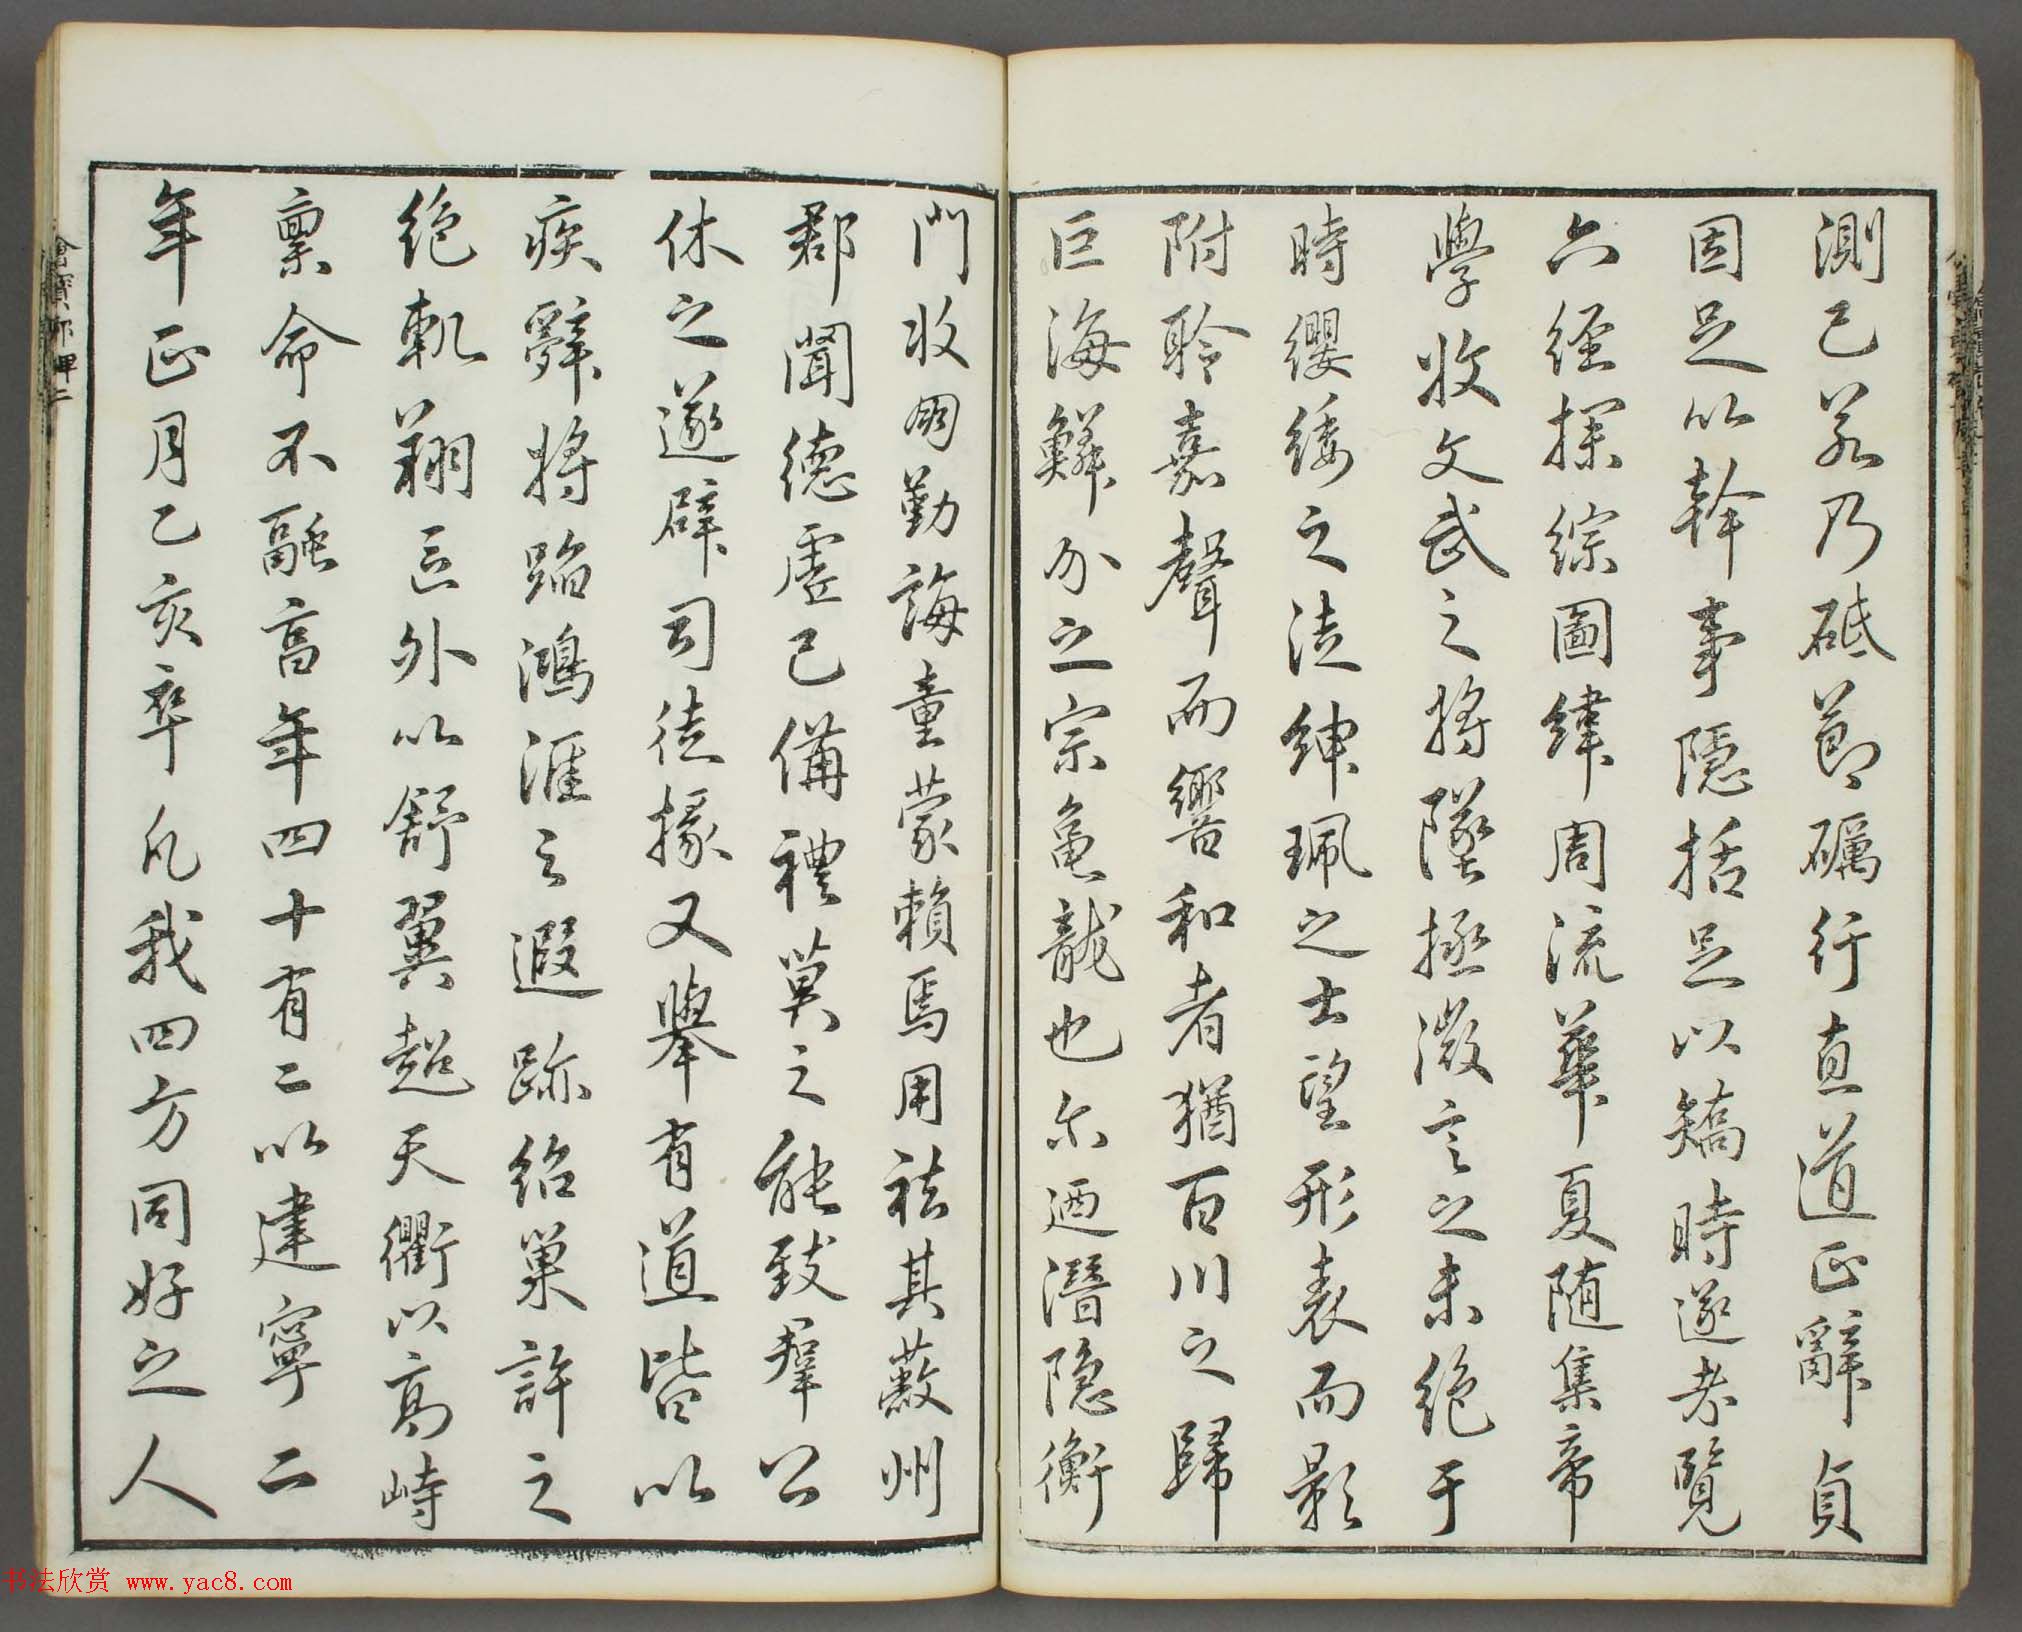 測已若乃砥節礪行直道正辭貞
固足以幹事隱括足以矯時遂考覽
六經探綜圖緯周流華夏随集帝
學收文武之將墜拯微言之未絕于
時纓緌之徒紳珮之士望形表而影
附聆嘉聲而響和者猶百川之歸
巨海鱗介之宗龜龍也尔迺潛隱衡
門收朋勤誨童蒙賴焉用祛其蔽州
郡聞德虛己備禮莫之能致羣公
休之遂辟司徒掾又舉有道皆以
疾辭將蹈鴻涯之遐跡紹巢許之
絕軌翔區外以舒翼超天衢以高峙
稟命不融享年四十有二以建寧二
年正月乙亥卒凡我四方同好之人
書法欣赏 www.yac8.com